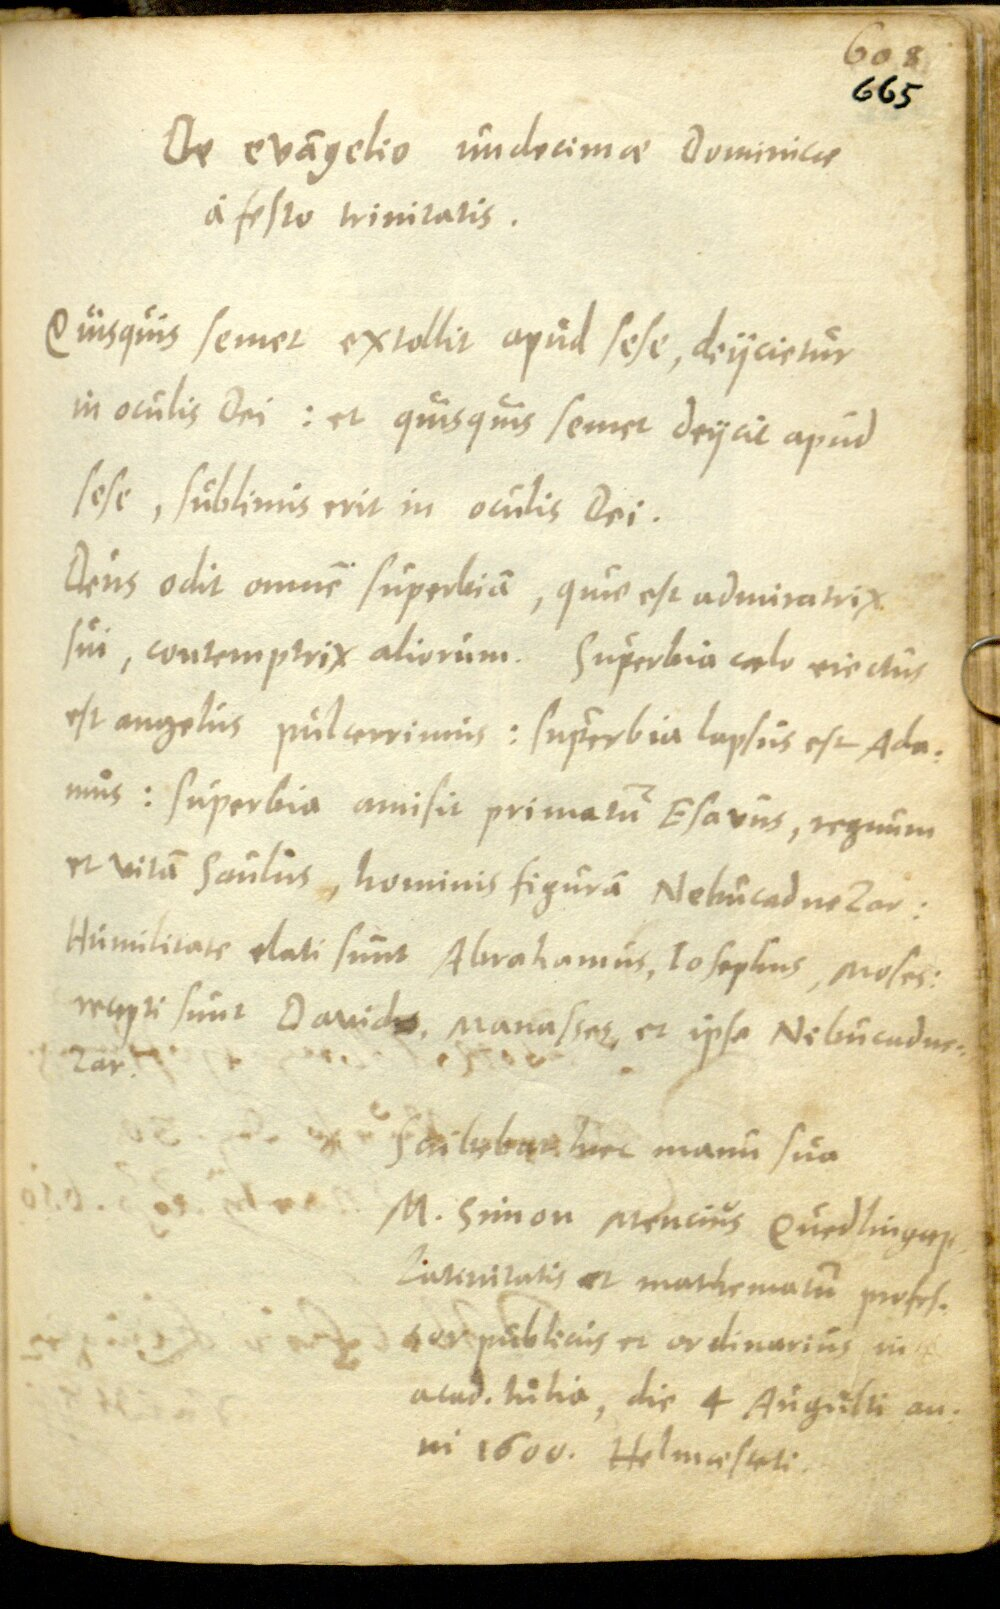 608
665
De evāgelio undecimæ Dominicæ
à festo trinitatis.
Quisquis semet extollit apud sese, deijcietur
in oculis Dei : et quisquis semet deijcit apud
sese, sublimis erit in oculis Dei.
Deus odit omnē superbiā, quæ est admiratrix
sui, contemptrix aliorum. Superbia cælo eiectus
est angelus pulcerrimus : superbia lapsus est Ada-
mus : superbia amisit primatū Esavus, regnum
et vitā Saulus, hominis figurā Nebucadnezar :
Humilitate elati sunt Abrahamus, Iosephus, Moses:
recepti sunt Davides, Manasses, et ipse Nebucadne-
zar.
Scribebat hæc manu sua
M. Simon Mencius Quedlingap.
Latinitatis et mathematū profes-
sor publicus et ordinarius in
acad. Iulia, die 4 Augusti an-
ni 1600. Helmæsteti.